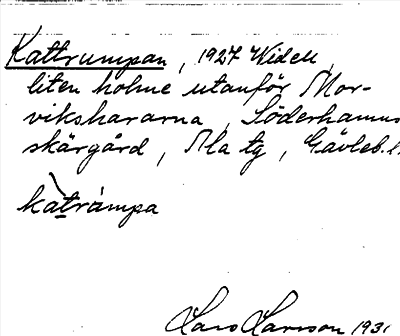 Kattrumpan, 1927 Widell,
liten holme utanför Mor-
vikshararna, Söderhamns
skärgård, Ala tg, Gävleb. l.
katrámpa
Lars Larsson 193